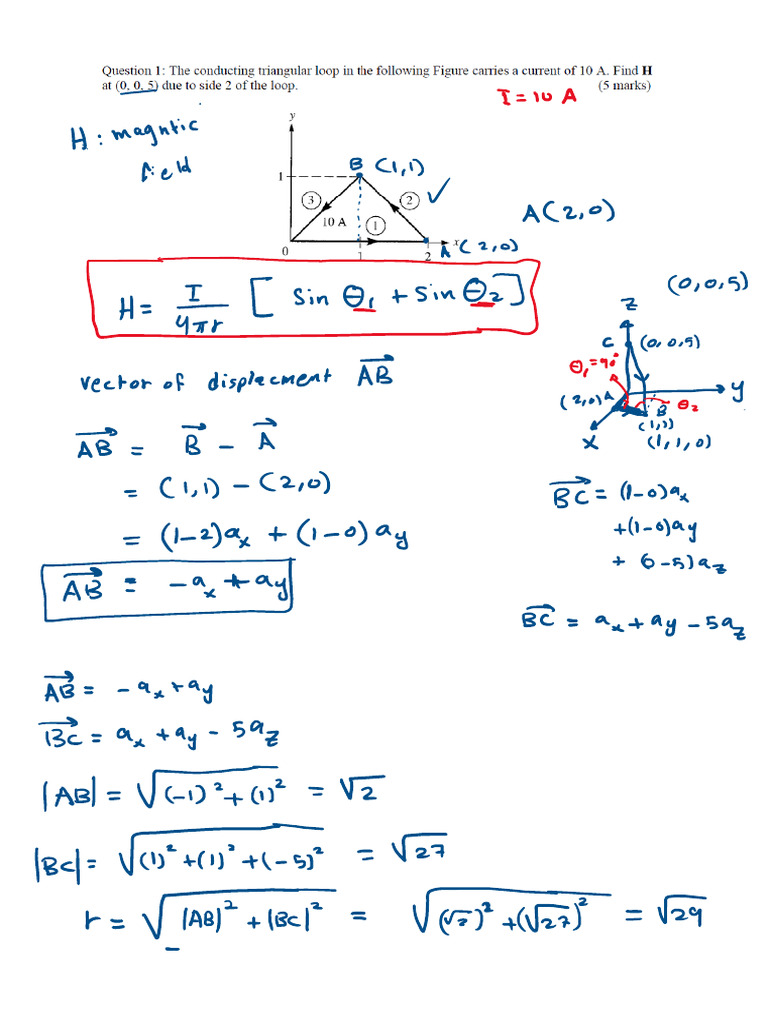 Question 1: The conducting triangular loop in the following Figure carries a current of 10 A. Find H
at (0, 0, 5) due to side 2 of the loop. (5 marks)
I = 10 A
H : magntic
field
y
B (1,1)
1
3
2
10 A
1
A(2,0)
0
1
2
x
A (2,0)
H = I/4πr [ Sin θ1 + Sin θ2 ]
(0,0,5)
z
C (0,0,5)
θ1 = 90°
(2,0) A
y
B
θ2
(1,1)
x
(1,1,0)
vector of displacment AB
AB = B - A
= (1,1) - (2,0)
= (1-2)ax + (1-0) ay
AB = -ax + ay
BC = (1-0)ax
+(1-0)ay
+ (0-5)az
BC = ax + ay - 5az
AB = -ax + ay
BC = ax + ay - 5az
|AB| = √((-1)² + (1)²) = √2
|BC| = √((1)² + (1)² + (-5)²) = √27
r = √(|AB|² + |BC|²) = √((√2)² + (√27)²) = √29